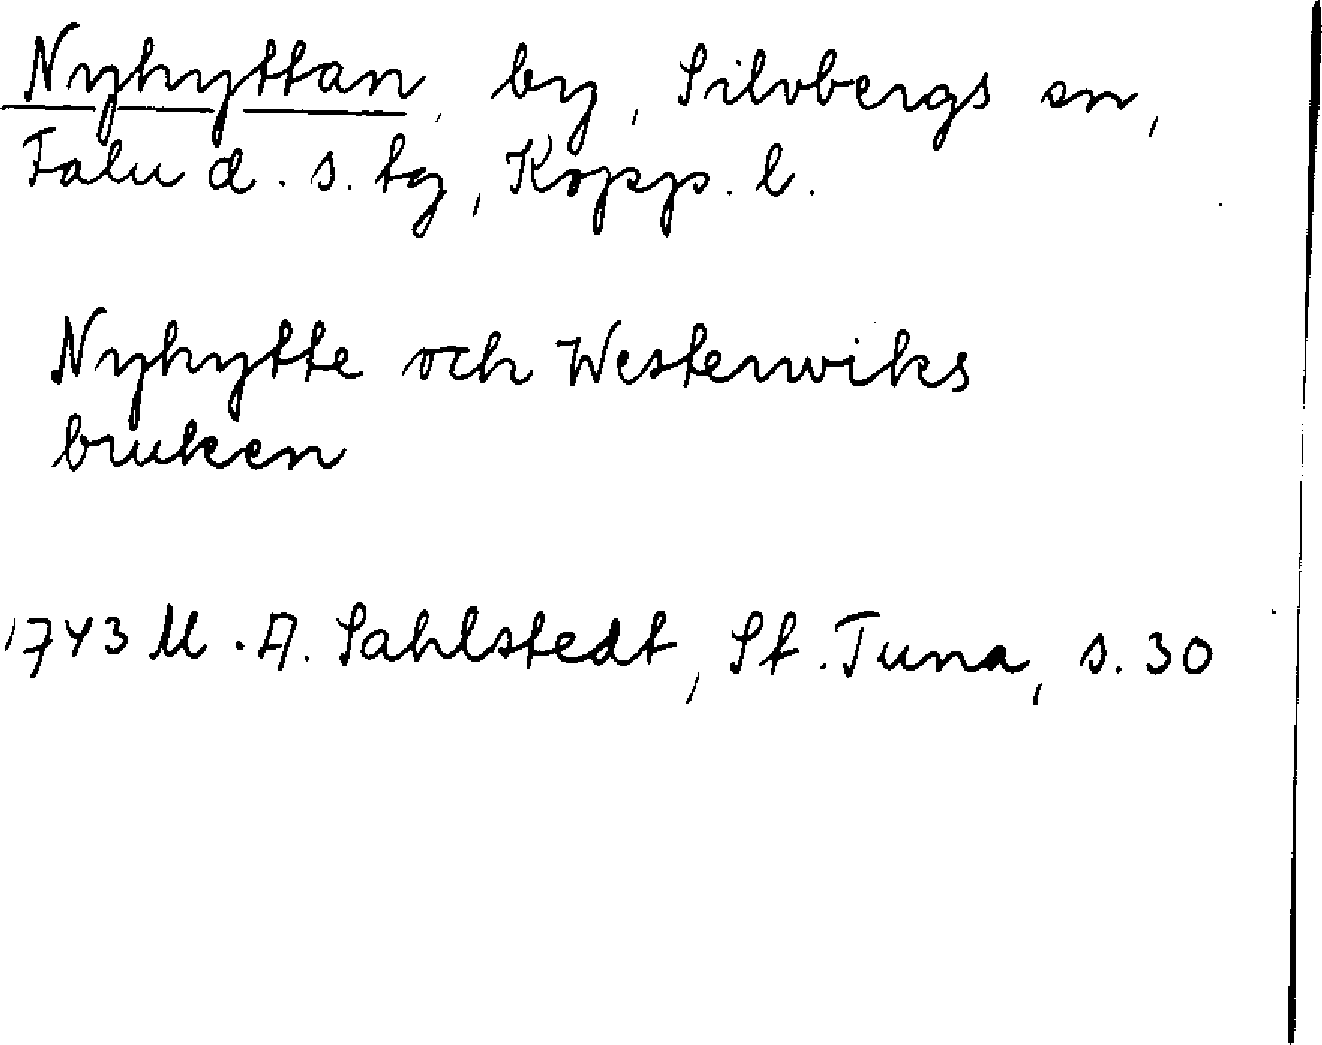 Nyhyttan, by, Silvbergs sn,
Falu d. s. tg, Kopp. l.
Nyhytte och Westerwiks
bruken
1743 M. A. Sahlstedt, St. Tuna, s. 30